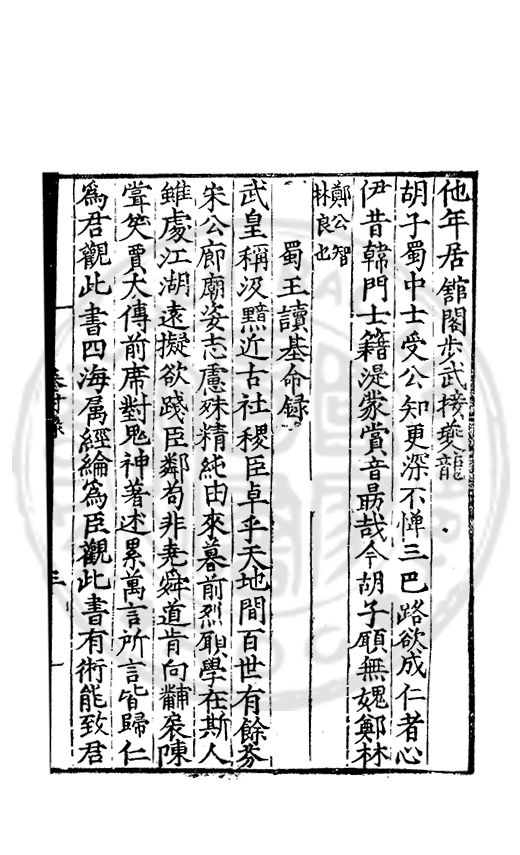 他年居舘閣步武接夔龍
胡子蜀中士受公知更深不憚三巴路欲成仁者心
伊昔韓門士籍湜蒙賞音勗哉今胡子願無媿鄭林
鄭公智
林良也
蜀王讀基命録
武皇稱汲黯近古社稷臣卓乎天地間百世有餘芬
宋公廊廟姿志慮殊精純由來慕前烈聖學在斯人
雖處江湖遠擬欲踐臣鄰苟非堯舜道肯向黼扆陳
甞笑賈太傅前席對鬼神著述累萬言所言皆歸仁
爲君觀此書四海属經綸爲臣觀此書有術能致君
三